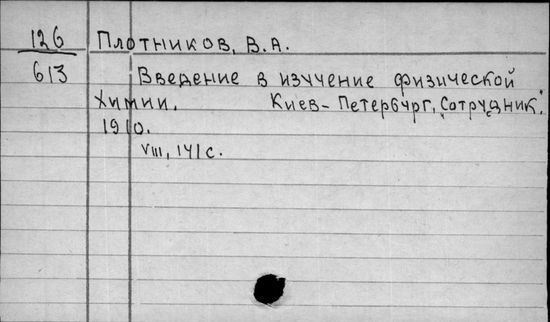 126
613
Плотников, В.А.
Введение в изучение физической
химии. Киев-Петербург, „Сотрудник".
1910.
VIII, 141 с.